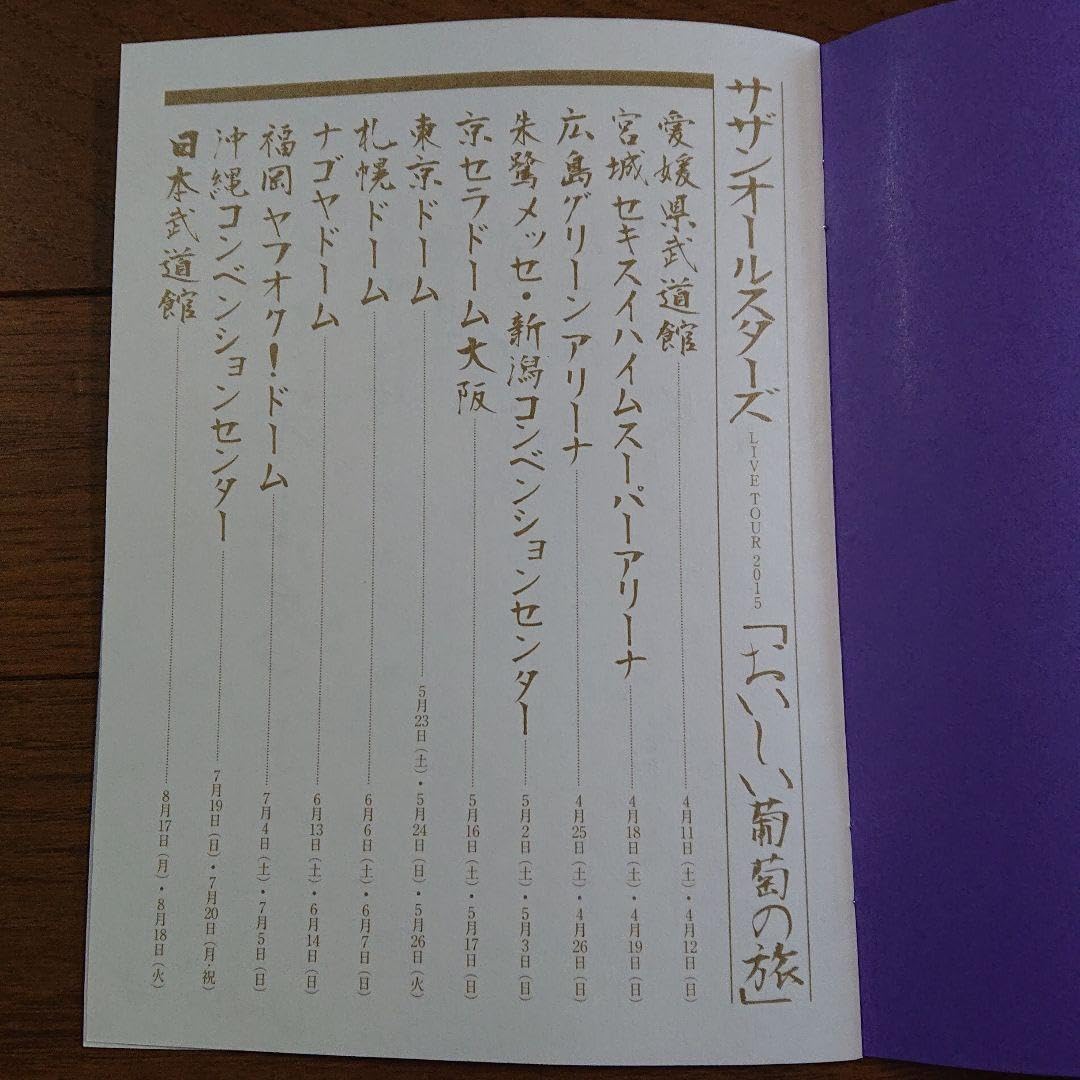 サザンオールスターズ LIVE TOUR 2015 「おいしい葡萄の旅」
愛媛県武道館 4月11日（土）・4月12日（日）
宮城セキスイハイムスーパーアリーナ 4月18日（土）・4月19日（日）
広島グリーンアリーナ 4月25日（土）・4月26日（日）
朱鷺メッセ・新潟コンベンションセンター 5月2日（土）・5月3日（日）
京セラドーム大阪 5月16日（土）・5月17日（日）
東京ドーム 5月23日（土）・5月24日（日）・5月26日（火）
札幌ドーム 6月6日（土）・6月7日（日）
ナゴヤドーム 6月13日（土）・6月14日（日）
福岡ヤフオク！ドーム 7月4日（土）・7月5日（日）
沖縄コンベンションセンター 7月19日（日）・7月20日（月・祝）
日本武道館 8月17日（月）・8月18日（火）